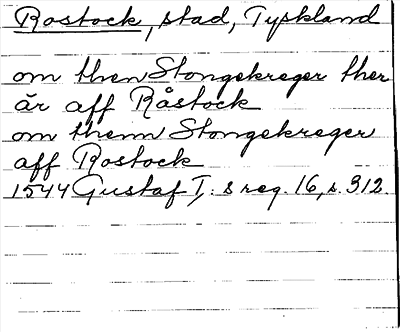 Rostock, stad, Tyskland
om then Stongekreger ther
är aff Råstock
om thenn Stongekreger
aff Rostock
1544 Gustaf I: s reg. 16, s. 312.